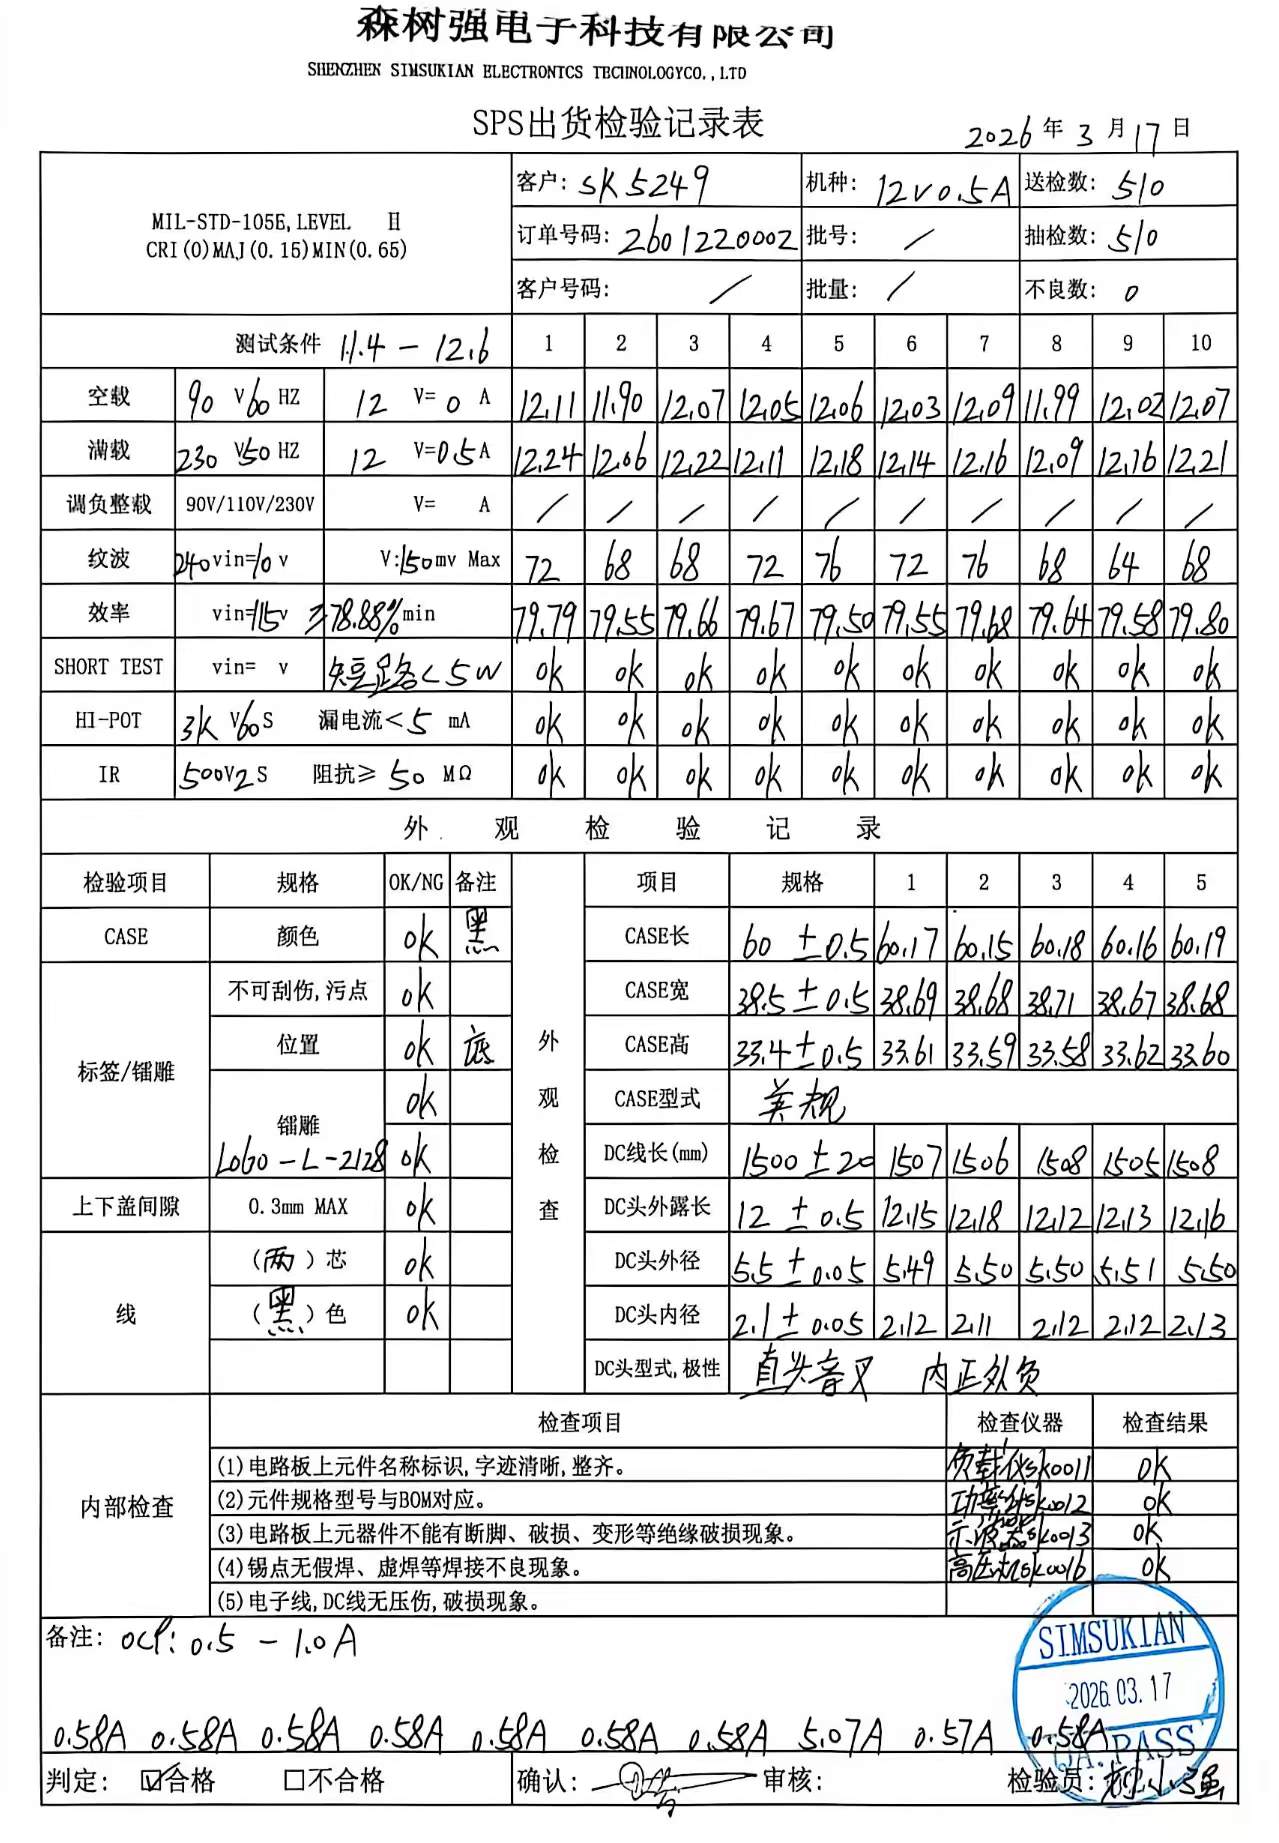 森树强电子科技有限公司
SHENZHEN SIMSUKIAN ELECTRONTCS TECHNOLOGYCO.,LTD
SPS出货检验记录表 2026年3月17日
MIL-STD-105E,LEVEL Ⅱ
CRI(0)MAJ(0.15)MIN(0.65)
客户: SK5249 机种: 12V0.5A 送检数: 510
订单号码: 2601220002 批号: / 抽检数: 510
客户号码: / 批量: / 不良数: 0
测试条件 11.4-12.6 1 2 3 4 5 6 7 8 9 10
空载 90 V60 HZ 12 V= 0 A 12.11 11.90 12.07 12.05 12.06 12.03 12.09 11.99 12.02 12.07
满载 230 V50 HZ 12 V=0.5 A 12.24 12.06 12.22 12.11 12.18 12.14 12.16 12.09 12.16 12.21
调负整载 90V/110V/230V V= A / / / / / / / / / /
纹波 240vin=10 v V:150mv Max 72 68 68 72 76 72 76 68 64 68
效率 vin=115v ≥78.88%min 79.79 79.55 79.66 79.67 79.50 79.55 79.68 79.64 79.58 79.80
SHORT TEST vin= v 短路<5W OK OK OK OK OK OK OK OK OK OK
HI-POT 3K V60S 漏电流<5 mA OK OK OK OK OK OK OK OK OK OK
IR 500V2S 阻抗≥ 50 MΩ OK OK OK OK OK OK OK OK OK OK
外观检验记录
检验项目 规格 OK/NG 备注 项目 规格 1 2 3 4 5
CASE 颜色 OK 黑 CASE长 60 ±0.5 60.17 60.15 60.18 60.16 60.19
不可刮伤,污点 OK CASE宽 38.5±0.5 38.69 38.68 38.71 38.67 38.68
标签/镭雕 位置 OK 底 外观检查 CASE高 33.4±0.5 33.61 33.59 33.58 33.62 33.60
OK CASE型式 美规
镭雕 LOGO-L-2128 OK DC线长(mm) 1500±20 1507 1506 1508 1505 1508
上下盖间隙 0.3mm MAX OK DC头外露长 12 ±0.5 12.15 12.18 12.12 12.13 12.16
线 (两)芯 OK DC头外径 5.5±0.05 5.49 5.50 5.50 5.51 5.50
(黑)色 OK DC头内径 2.1±0.05 2.12 2.11 2.12 2.12 2.13
DC头型式,极性 直头音叉 内正外负
内部检查 检查项目 检查仪器 检查结果
(1)电路板上元件名称标识,字迹清晰,整齐。 负载仪SK0011 OK
(2)元件规格型号与BOM对应。 功率仪SK0012 OK
(3)电路板上元器件不能有断脚、破损、变形等绝缘破损现象。 示波器SK0013 OK
(4)锡点无假焊、虚焊等焊接不良现象。 高压机SK0016 OK
(5)电子线,DC线无压伤,破损现象。
备注: OCP: 0.5-1.0A
SIMSUKIAN
2026.03.17
QA.PASS
0.58A 0.58A 0.58A 0.58A 0.58A 0.58A 0.58A 5.07A 0.57A 0.58A
判定: ☑合格 □不合格 确认: 审核: 检验员: